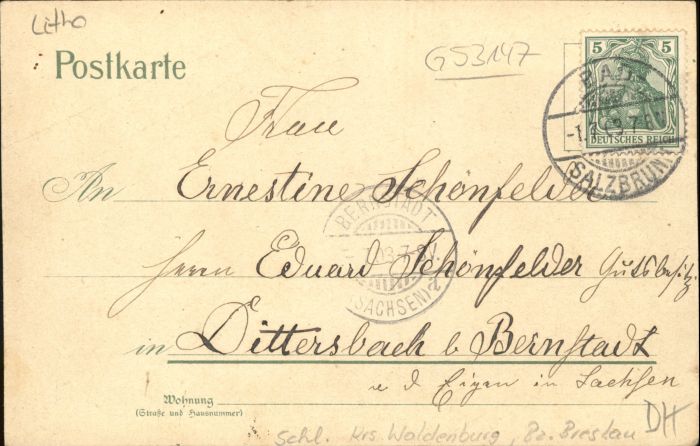 Litho
Postkarte
G53147
5 5
DEUTSCHES REICH
BAD
SALZBRUNN
Frau
An Ernestine Schönfelder
BERNSTADT
(SACHSEN)
Herrn Eduard Schönfelder Gutsbesitz.
in Dittersbach b Bernstadt
a d Eigen in Sachsen
Wohnung
(Straße und Hausnummer)
DH
Schl. Krs. Waldenburg Bz. Breslau